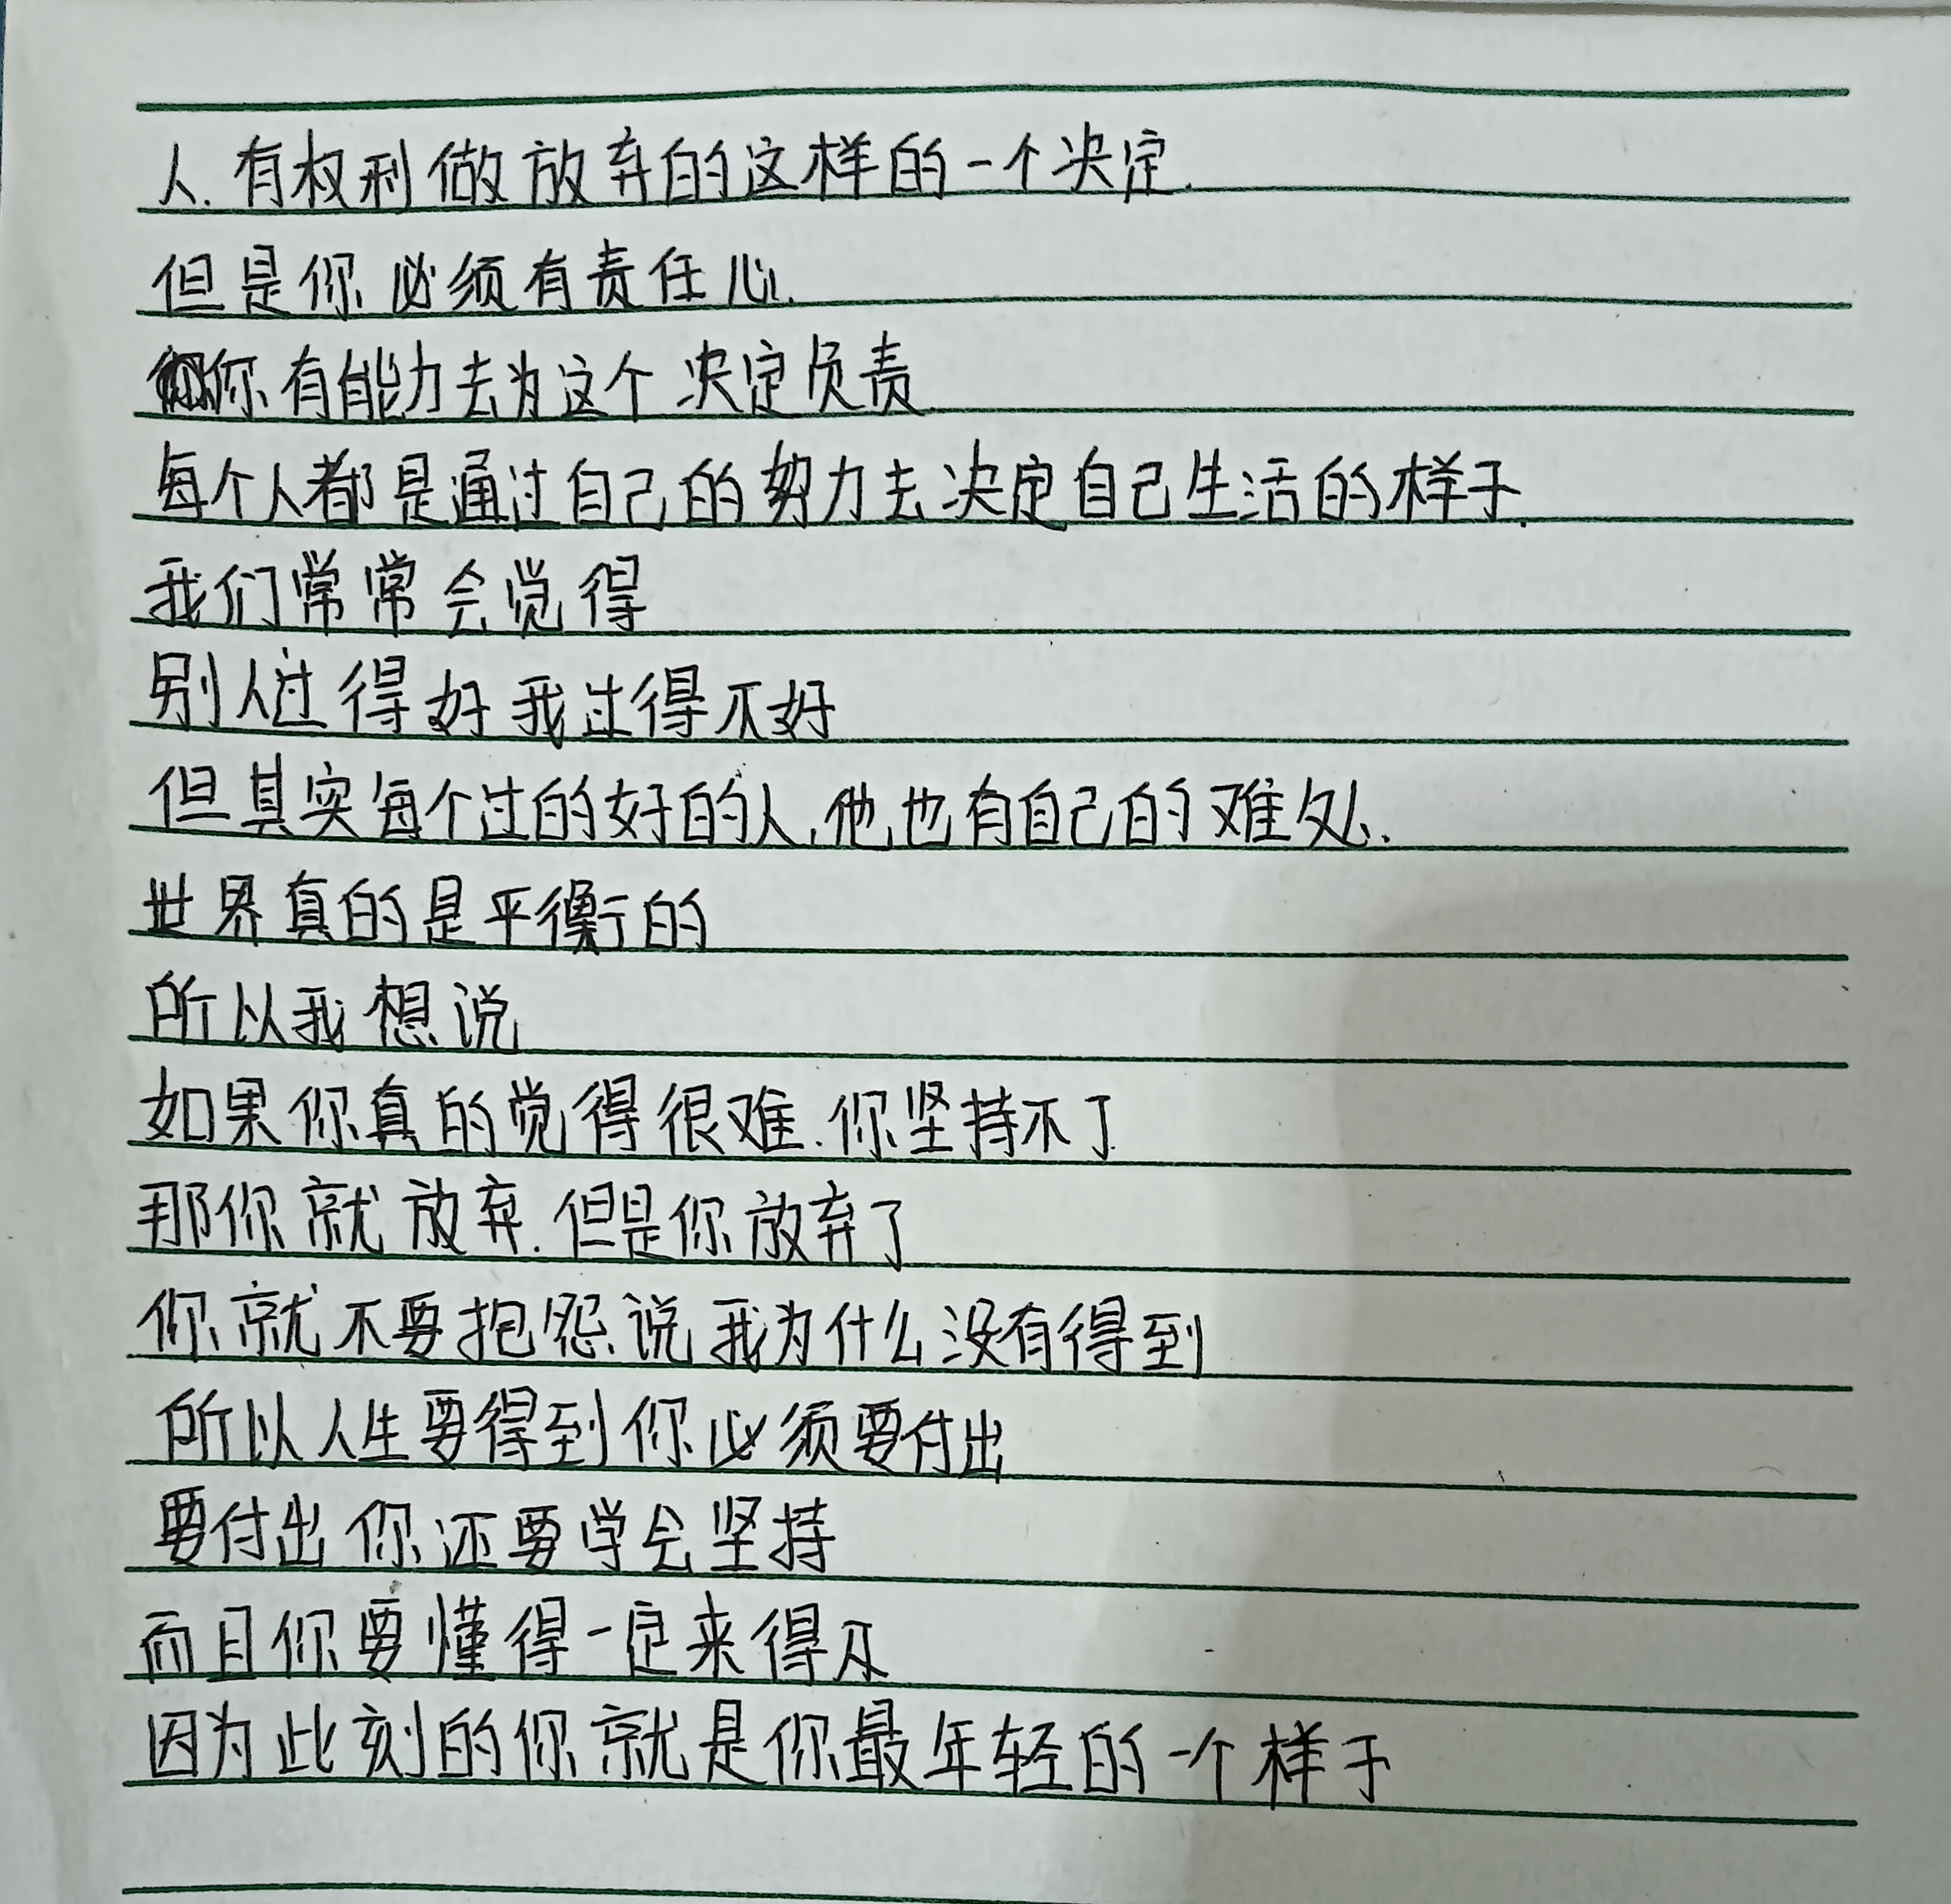 人.有权利做放弃的这样的一个决定.
但是你必须有责任心.
你有能力去为这个决定负责
每个人都是通过自己的努力去决定自己生活的样子.
我们常常会觉得
别人过得好我过得不好
但其实每个过的好的人,他也有自己的难处.
世界真的是平衡的
所以我想说
如果你真的觉得很难.你坚持不了
那你就放弃.但是你放弃了
你就不要抱怨说我为什么没有得到
所以人生要得到你必须要付出
要付出你还要学会坚持
而且你要懂得一定来得及
因为此刻的你就是你最年轻的一个样子